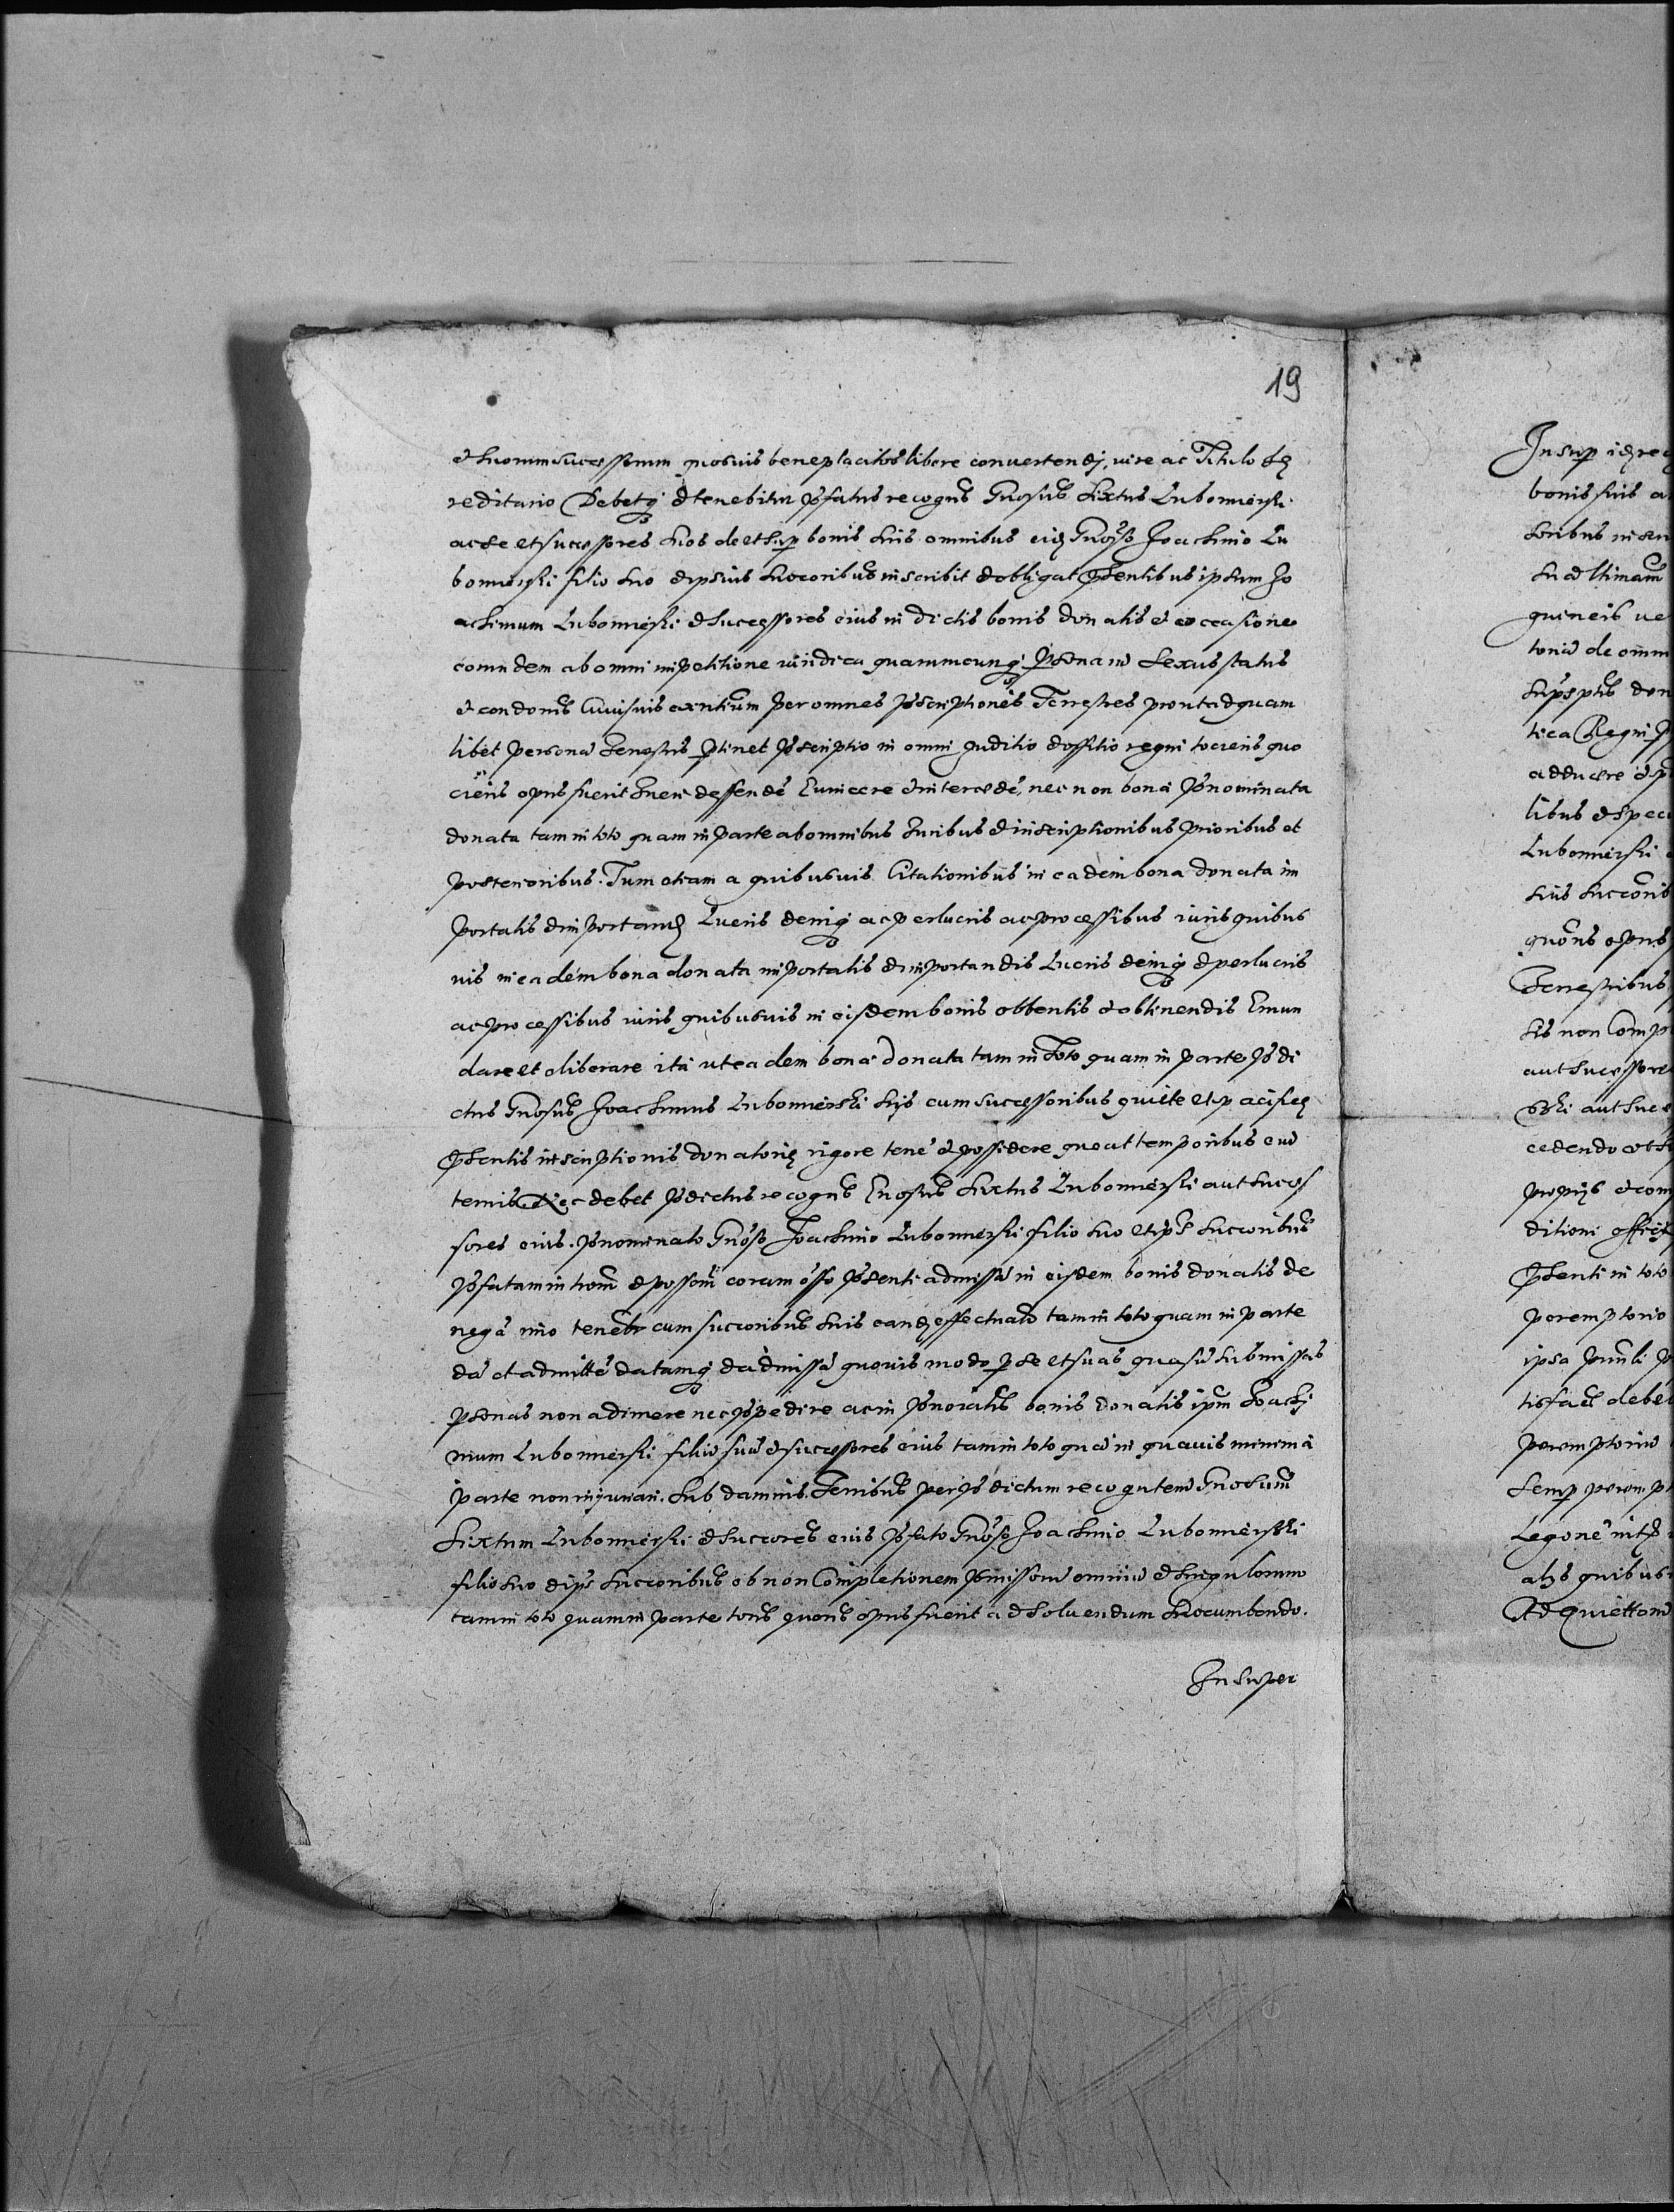 19
et suorum successorum quosvis beneplacitos libere convertendi, iure ac Titulo hę
reditario Debetq̃ et tenebitur p̃fatus recogñs Gñosus Sixtus Lubomierski
ac se et successores suos de et sup bonis suis omnibus eidę Gñoso Joachimo Lu
bomierski filio suo et ipsius succoribus inscribit et obligat p̃sentibus ipsum Jo
achimum Lubomierski et successores eius in dictis bonis donatis et occasione
eorundem ab omni impetitione iuridica quarumcunq̃ p̃sonarũ sexus status
et condonis cuiusvis exñtium per omnes p̃scriptiones Terrestres prout ad quam
libet personã Terrestris p̃tinet p̃scriptio in omni iuditio et offitio regni tociens quo
ciens opus fuerit tueri deffendẽ Evincere et intercedẽ, nec non bona p̃nominata
donata tam in toto quam in parte ab omnibus Iuribus et inscriptionibus prioribus et
posterioribus. Tum etiam a quibusvis Citationibus in eadem bona donata im
portatis et importandę Lucris deniq̃ ac perlucris ac processibus iuris quibus
vis in eadem bona donata importatis et importandis Lucris deniq̃ et perlucris
ac processibus iuris quibusvis in eisdem bonis obtentis et obtinendis Emun
dare et eliberare ita ut eadem bona donata tam in toto quam in parte p̃di
ctus Gñosus Joachimus Lubomierski suis cum successoribus quiete et pacificę
p̃sentis inscriptionis donatorię rigore tenẽ et possidere queat temporibus evi
ternis Nec debet p̃dictus recogñs Gñosus Sixtus Lubomierski aut succes
sores eius. p̃nominato Gñoso Joachimo Lubomierski filio suo et ips̃ succoribus
p̃fatam introm̃ et possom̃ coram offo p̃senti admissã in eisdem bonis donatis de
negã imo tenebr̃ cum succoribus suis eandę effectualr̃ tam in toto quam in parte
dã et admittẽ datamq̃ et admissã quovis modo p se et suas quasvis submissas
p̃sonas non adimere nec p̃pedire ac in p̃noĩatis bonis donatis ipm̃ Joachi
mum Lubomierski filiũ suũ et successores eius tam in toto quã in quavis minima
parte non iniuriari. Sub damnis Terribus per p̃dictum recogñtem Gñosum
Sixtum Lubomierski et succores eius p̃fato Gñoso Joachimo Lubomierski
filio suo et ips̃ succoribus ob non Completionem p̃missorũ omniũ et singulorum
tam in toto quam in parte tons̃ quons̃ opus fuerit ad soluendum succumbendo.
Insuper
Insup idę re
bonis suis a
soribus
quineis ve
toniũ de omni
don
tica Regni
adducere
libus et speci
Lubomierski
suis succoris
quoñs opus
Terrestribus
sis non Comp
aut successore
aut suc
cedendo et
proprijs et com
ditioni offici
p̃senti in toto
peremptorio
ipsa
tisfac̃ debe
peremptoriũ
semp perempt
alijs quibus